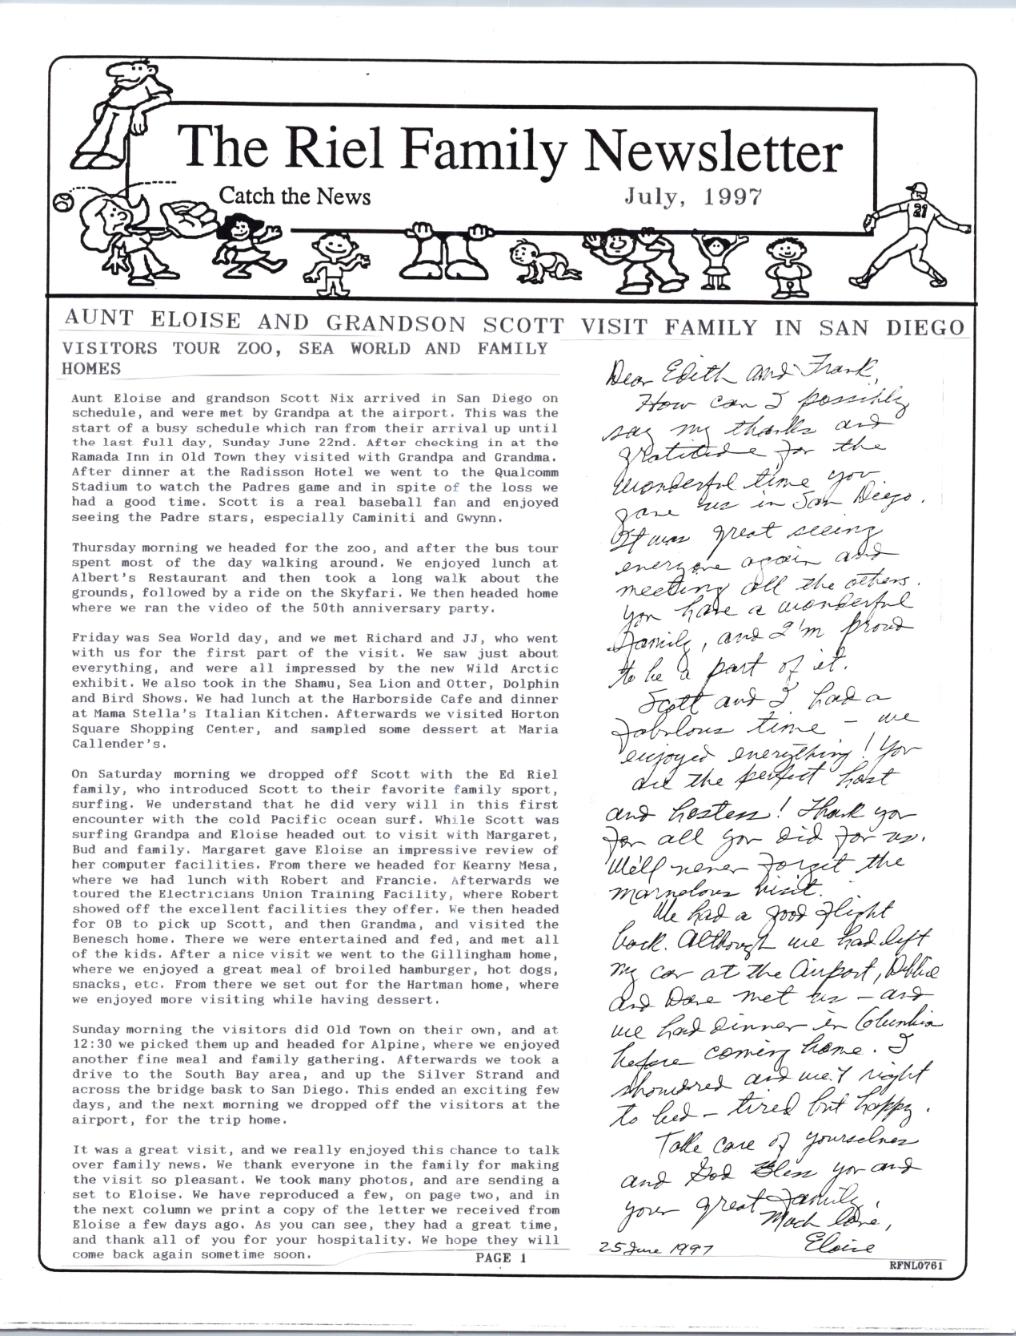 The Riel Family Newsletter
Catch the News
July, 1997
21
AUNT ELOISE AND GRANDSON SCOTT VISIT FAMILY IN SAN DIEGO
VISITORS TOUR ZOO, SEA WORLD AND FAMILY
HOMES
Aunt Eloise and grandson Scott Nix arrived in San Diego on
schedule, and were met by Grandpa at the airport. This was the
start of a busy schedule which ran from their arrival up until
the last full day, Sunday June 22nd. After checking in at the
Ramada Inn in Old Town they visited with Grandpa and Grandma.
After dinner at the Radisson Hotel we went to the Qualcomm
Stadium to watch the Padres game and in spite of the loss we
had a good time. Scott is a real baseball fan and enjoyed
seeing the Padre stars, especially Caminiti and Gwynn.
Thursday morning we headed for the zoo, and after the bus tour
spent most of the day walking around. We enjoyed lunch at
Albert's Restaurant and then took a long walk about the
grounds, followed by a ride on the Skyfari. We then headed home
where we ran the video of the 50th anniversary party.
Friday was Sea World day, and we met Richard and JJ, who went
with us for the first part of the visit. We saw just about
everything, and were all impressed by the new Wild Arctic
exhibit. We also took in the Shamu, Sea Lion and Otter, Dolphin
and Bird Shows. We had lunch at the Harborside Cafe and dinner
at Mama Stella's Italian Kitchen. Afterwards we visited Horton
Square Shopping Center, and sampled some dessert at Maria
Callender's.
On Saturday morning we dropped off Scott with the Ed Riel
family, who introduced Scott to their favorite family sport,
surfing. We understand that he did very will in this first
encounter with the cold Pacific ocean surf. While Scott was
surfing Grandpa and Eloise headed out to visit with Margaret,
Bud and family. Margaret gave Eloise an impressive review of
her computer facilities. From there we headed for Kearny Mesa,
where we had lunch with Robert and Francie. Afterwards we
toured the Electricians Union Training Facility, where Robert
showed off the excellent facilities they offer. We then headed
for OB to pick up Scott, and then Grandma, and visited the
Benesch home. There we were entertained and fed, and met all
of the kids. After a nice visit we went to the Gillingham home,
where we enjoyed a great meal of broiled hamburger, hot dogs,
snacks, etc. From there we set out for the Hartman home, where
we enjoyed more visiting while having dessert.
Sunday morning the visitors did Old Town on their own, and at
12:30 we picked them up and headed for Alpine, where we enjoyed
another fine meal and family gathering. Afterwards we took a
drive to the South Bay area, and up the Silver Strand and
across the bridge bask to San Diego. This ended an exciting few
days, and the next morning we dropped off the visitors at the
airport, for the trip home.
It was a great visit, and we really enjoyed this chance to talk
over family news. We thank everyone in the family for making
the visit so pleasant. We took many photos, and are sending a
set to Eloise. We have reproduced a few, on page two, and in
the next column we print a copy of the letter we received from
Eloise a few days ago. As you can see, they had a great time,
and thank all of you for your hospitality. We hope they will
come back again sometime soon.
Dear Edith and Frank,
How can I possibly
say my thanks and
gratitude for the
wonderful time you
gave us in San Diego.
It was great seeing
everyone again and
meeting all the others.
You have a wonderful
family, and I'm proud
to be a part of it.
Scott and I had a
fabulous time - we
enjoyed everything! You
are the perfect host
and hostess! Thank you
for all you did for us.
We'll never forget the
marvelous visit.
We had a good flight
back. Although we had left
my car at the Airport, Debbie
and Dave met us - and
we had dinner in Columbia
before coming home. I
showered and went right
to bed - tired but happy.
Take care of yourselves
and God Bless you and
your great family.
Much love,
Eloise
25 June 1997
PAGE 1
RFNL0761